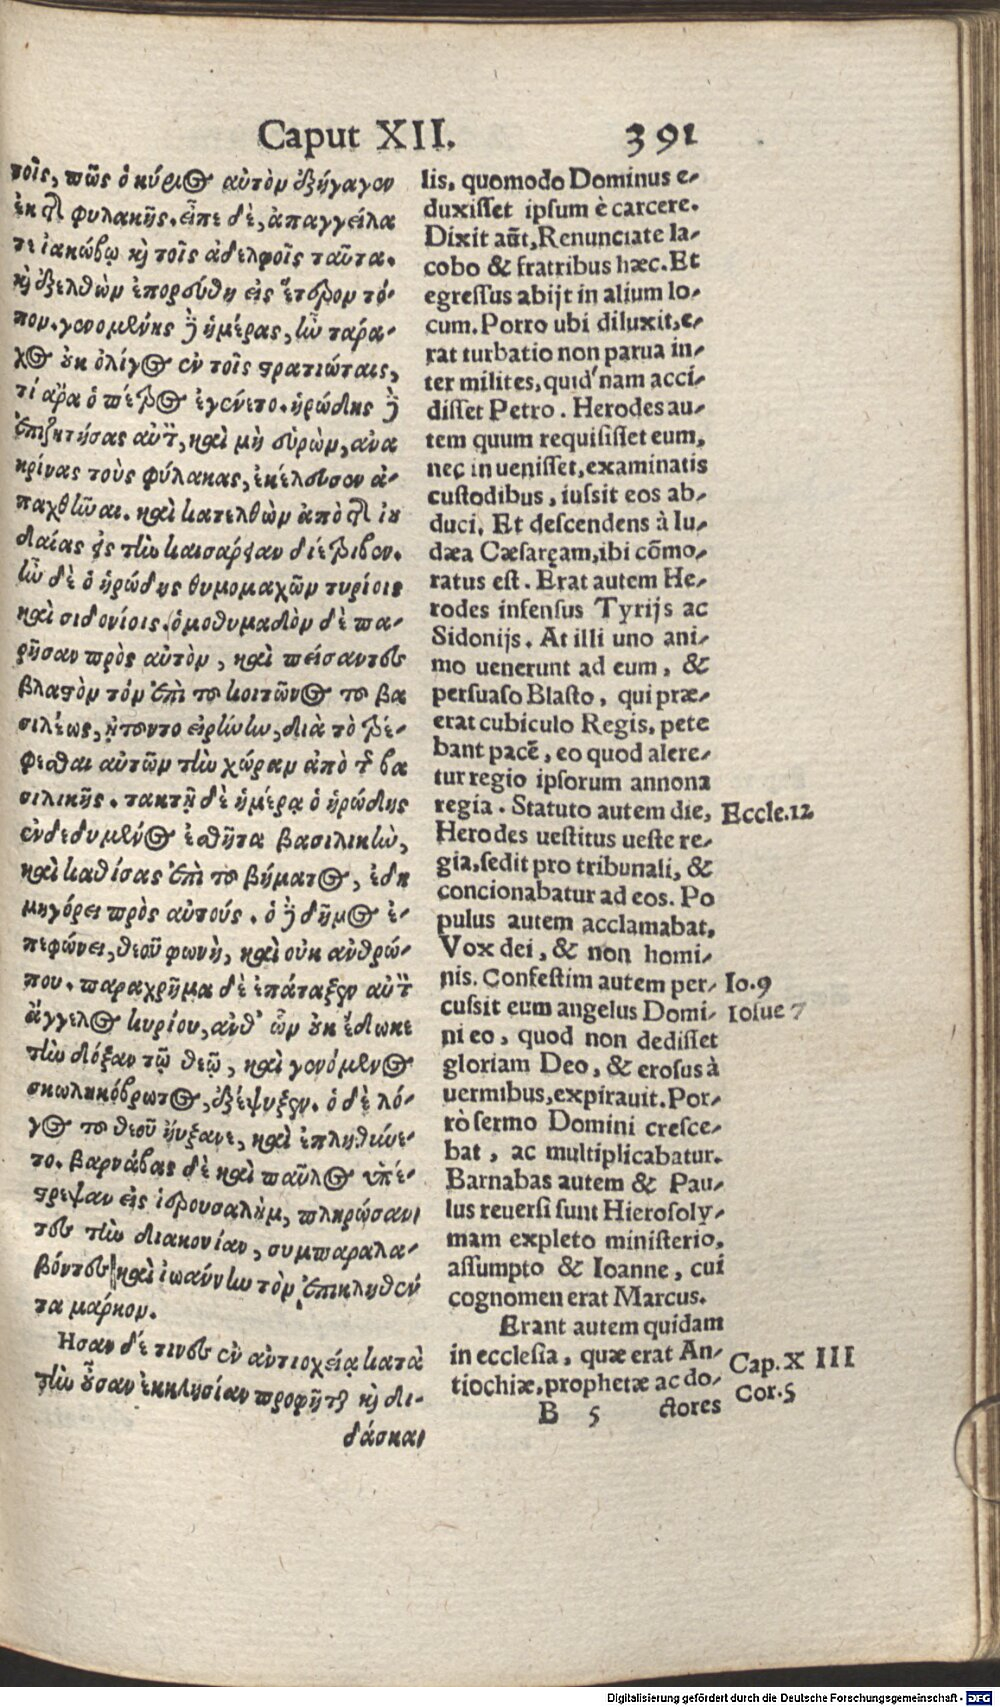 Caput XII. 391
τοῖς, πῶς ὁ κύριος αὐτὸν ἐξήγαγεν
ἐκ τῆς φυλακῆς. εἶπε δὲ, ἀπαγγείλα
τε ἰακώβῳ καὶ τοῖς ἀδελφοῖς ταῦτα.
καὶ ἐξελθὼν ἐπορεύθη εἰς ἕτερον τό-
πον. γενομένης δὲ ἡμέρας, ἦν ταρα-
χος οὐκ ὀλίγος ἐν τοῖς στρατιώταις,
τί ἄρα ὁ πέτρος ἐγένετο. ἡρώδης δὲ
ἐπιζητήσας αὐτὸν, καὶ μὴ εὑρὼν, ἀνα
κρίνας τοὺς φύλακας, ἐκέλευσεν ἀ-
παχθῆναι. καὶ κατελθὼν ἀπὸ τῆς ἰου
δαίας εἰς τὴν καισάρειαν διέτριβεν.
ἦν δὲ ὁ ἡρώδης θυμομαχῶν τυρίοις
καὶ σιδονίοις. ὁμοθυμαδὸν δὲ πα-
ρῆσαν πρὸς αὐτὸν, καὶ πείσαντες
βλαστὸν τὸν ἐπὶ τοῦ κοιτῶνος τοῦ βα
σιλέως, ᾐτοῦντο εἰρήνην, διὰ τὸ τρέ-
φεσθαι αὐτῶν τὴν χώραν ἀπὸ τῆς βα
σιλικῆς. τακτῇ δὲ ἡμέρᾳ ὁ ἡρώδης
ἐνδεδυμένος ἐσθῆτα βασιλικὴν,
καὶ καθίσας ἐπὶ τοῦ βήματος, ἐδη
μηγόρει πρὸς αὐτούς. ὁ δὲ δῆμος ἐ-
πεφώνει, θεοῦ φωνὴ, καὶ οὐκ ἀνθρώ-
που. παραχρῆμα δὲ ἐπάταξεν αὐτὸν
ἄγγελος κυρίου, ἀνθ' ὧν οὐκ ἔδωκε
τὴν δόξαν τῷ θεῷ, καὶ γενόμενος
σκωληκόβρωτος, ἐξέψυξεν. ὁ δὲ λό-
γος τοῦ θεοῦ ηὔξανε, καὶ ἐπληθύνε-
το. βαρνάβας δὲ καὶ παῦλος ὑπέ-
στρεψαν εἰς ἱερουσαλὴμ, πληρώσαν
τες τὴν διακονίαν, συμπαραλα-
βόντες καὶ ἰωάννην τὸν ἐπικληθέν
τα μάρκον.
Ησαν δέ τινες ἐν ἀντιοχείᾳ κατὰ
τὴν οὖσαν ἐκκλησίαν προφῆται καὶ δι-
δάσκαι
lis, quomodo Dominus e-
duxisset ipsum è carcere.
Dixit aūt, Renunciate Ia-
cobo & fratribus hæc. Et
egressus abijt in alium lo-
cum. Porro ubi diluxit, e-
rat turbatio non parua in-
ter milites, quid'nam acci-
disset Petro. Herodes au-
tem quum requisisset eum,
nec inuenisset, examinatis
custodibus, iussit eos ab-
duci. Et descendens à Iu-
dæa Cæsaręam, ibi cōmo-
ratus est. Erat autem He-
rodes infensus Tyrijs ac
Sidonijs. At illi uno ani-
mo uenerunt ad eum, &
persuaso Blasto, qui præ-
erat cubiculo Regis, pete
bant pacē, eo quod alere-
tur regio ipsorum annona
regia. Statuto autem die,
Herodes uestitus ueste re-
gia, sedit pro tribunali, &
concionabatur ad eos. Po
pulus autem acclamabat,
Vox dei, & non homi-
nis. Confestim autem per-
cussit eum angelus Domi-
ni eo, quod non dedisset
gloriam Deo, & erosus à
uermibus, expirauit. Por-
rò sermo Domini cresce-
bat, ac multiplicabatur.
Barnabas autem & Pau-
lus reuersi sunt Hierosoly-
mam expleto ministerio,
assumpto & Ioanne, cui
cognomen erat Marcus.
Erant autem quidam
in ecclesia, quæ erat An-
tiochiæ, prophetæ ac do-
B 5 ctores
Eccle.12
Io.9
Iosue 7
Cap.XIII
Cor.5
Digitalisierung gefördert durch die Deutsche Forschungsgemeinschaft - DFG